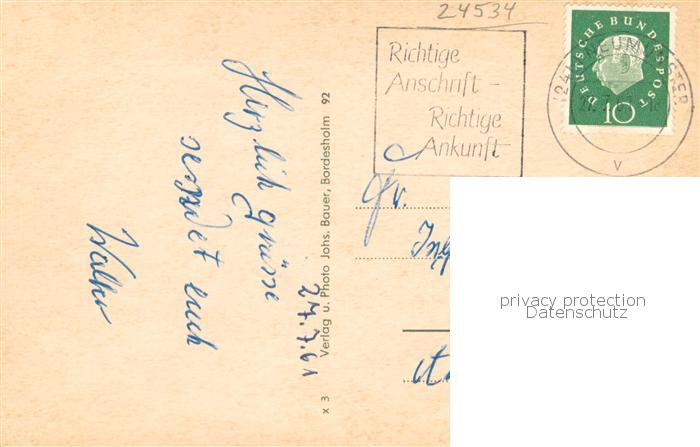 24534
Richtige
Anschrift -
Richtige
Ankunft
DEUTSCHE BUNDESPOST
10
NEUMÜNSTER
v
Herzlich grüsse
sendet euch
Walter
27.7.61
x 3 Verlag u. Photo Johs. Bauer, Bordesholm 92
privacy protection
Datenschutz